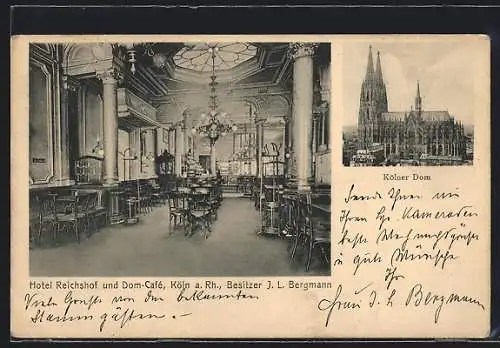 Kölner Dom
Sende Ihnen
Ihren Kameraden
beste Weihnachtsgrüße
u. gute Wünsche
Ihr
Frau J. L. Bergmann
Hotel Reichshof und Dom-Café, Köln a. Rh., Besitzer J. L. Bergmann
Viele Grüße von den bekannten
Stammgästen. —